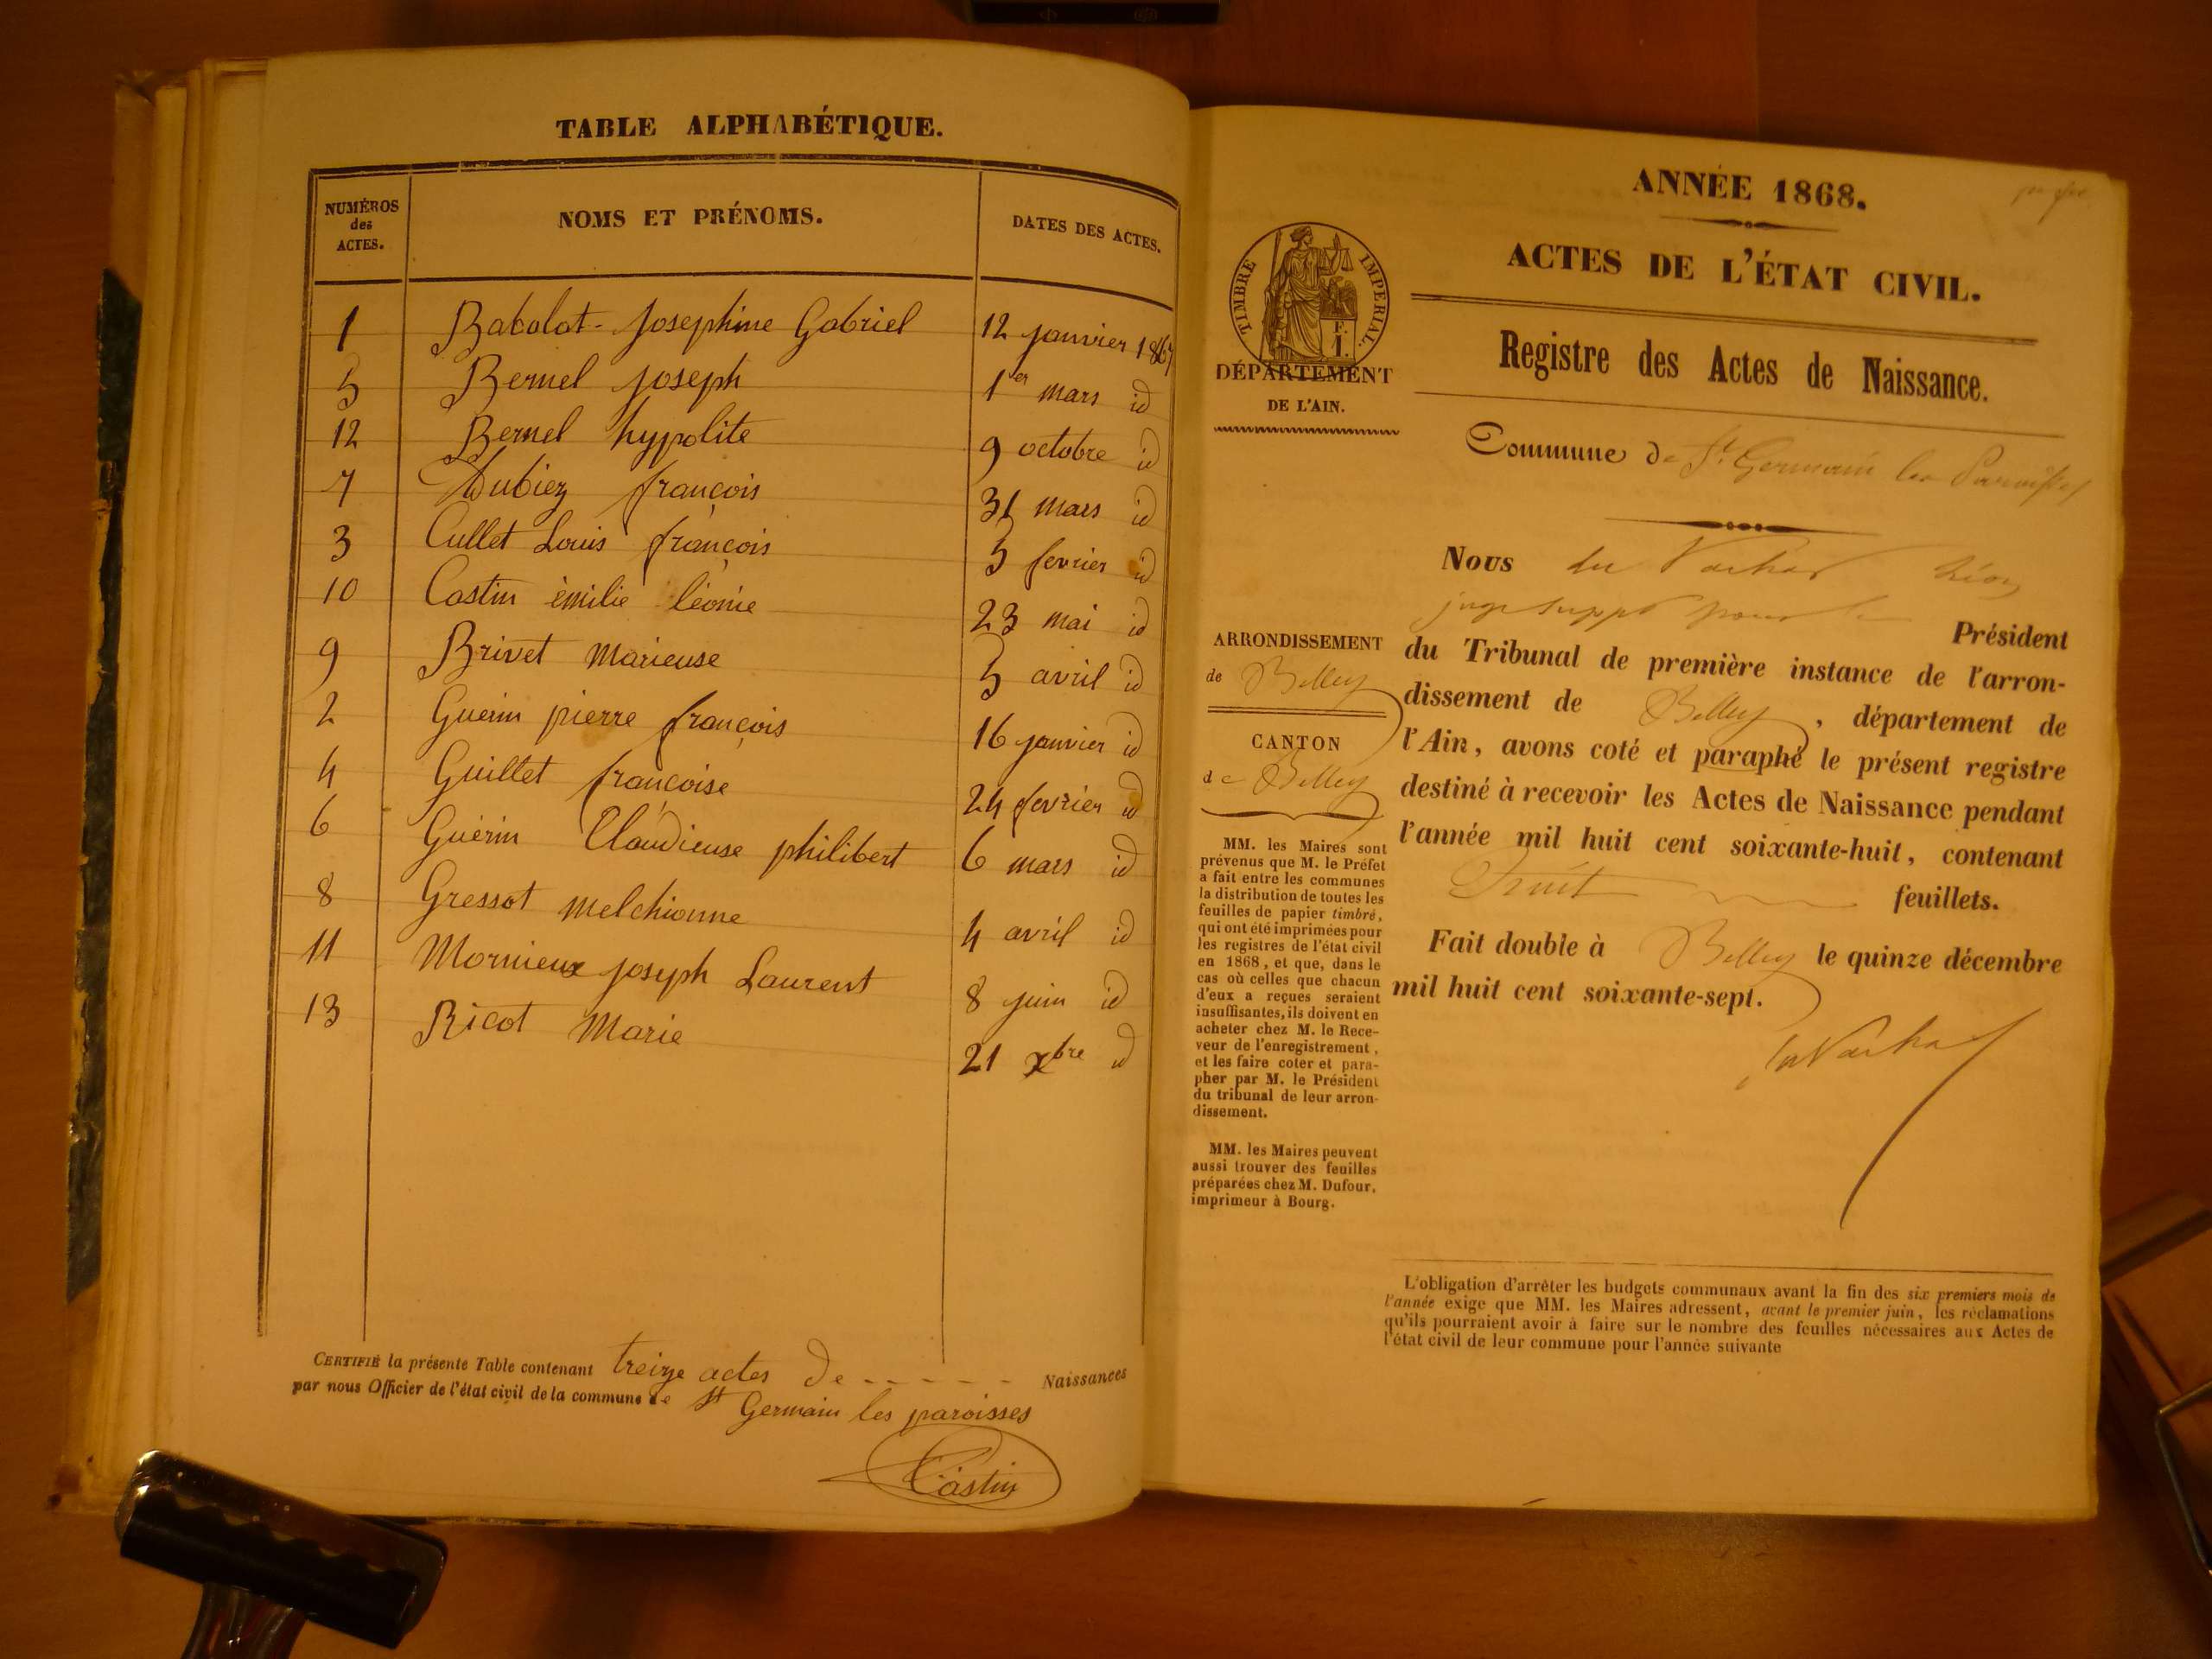 TABLE ALPHABÉTIQUE.
NUMÉROS des ACTES. NOMS ET PRÉNOMS. DATES DES ACTES.
1 Babolat - Josephine Gabriel 12 janvier 1867
5 Bernel Joseph 1er mars id
12 Bernel hypolite 9 octobre id
7 Dubiez françois 31 mars id
3 Cullet Louis françois 5 fevrier id
10 Castin émilie léonie 23 mai id
9 Brivet Marieuse 5 avril id
2 Guérin pierre françois 16 janvier id
4 Guillet françoise 24 fevrier id
6 Guérin Claudieuse philibert 6 mars id
8 Gressot melchionne 4 avril id
11 Mornieux joseph Laurent 8 juin id
13 Ricot Marie 21 xbre id
CERTIFIÉ la présente Table contenant treize actes de - - - - - Naissances
par nous Officier de l'état civil de la commune de St Germain les paroisses
Castin
ANNÉE 1868.
ACTES DE L'ÉTAT CIVIL.
TIMBRE IMPERIAL.
DÉPARTEMENT
DE L'AIN.
Registre des Actes de Naissance.
Commune de St. Germain les Paroisses
ARRONDISSEMENT
de Belley
CANTON
de Belley
MM. les Maires sont
prévenus que M. le Préfet
a fait entre les communes
la distribution de toutes les
feuilles de papier timbré,
qui ont été imprimées pour
les registres de l'état civil
en 1868, et que, dans le
cas où celles que chacun
d'eux a reçues seraient
insuffisantes, ils doivent en
acheter chez M. le Rece-
veur de l'enregistrement,
et les faire coter et para-
pher par M. le Président
du tribunal de leur arron-
dissement.
MM. les Maires peuvent
aussi trouver des feuilles
préparées chez M. Dufour,
imprimeur à Bourg.
Nous du Vachat Léon
juge suppt pour le Président
du Tribunal de première instance de l'arron-
dissement de Belley, département de
l'Ain, avons coté et paraphé le présent registre
destiné à recevoir les Actes de Naissance pendant
l'année mil huit cent soixante-huit, contenant
huit feuillets.
Fait double à Belley le quinze décembre
mil huit cent soixante-sept.
du Vachat
L'obligation d'arrêter les budgets communaux avant la fin des six premiers mois de
l'année exige que MM. les Maires adressent, avant le premier juin, les réclamations
qu'ils pourraient avoir à faire sur le nombre des feuilles nécessaires aux Actes de
l'état civil de leur commune pour l'année suivante